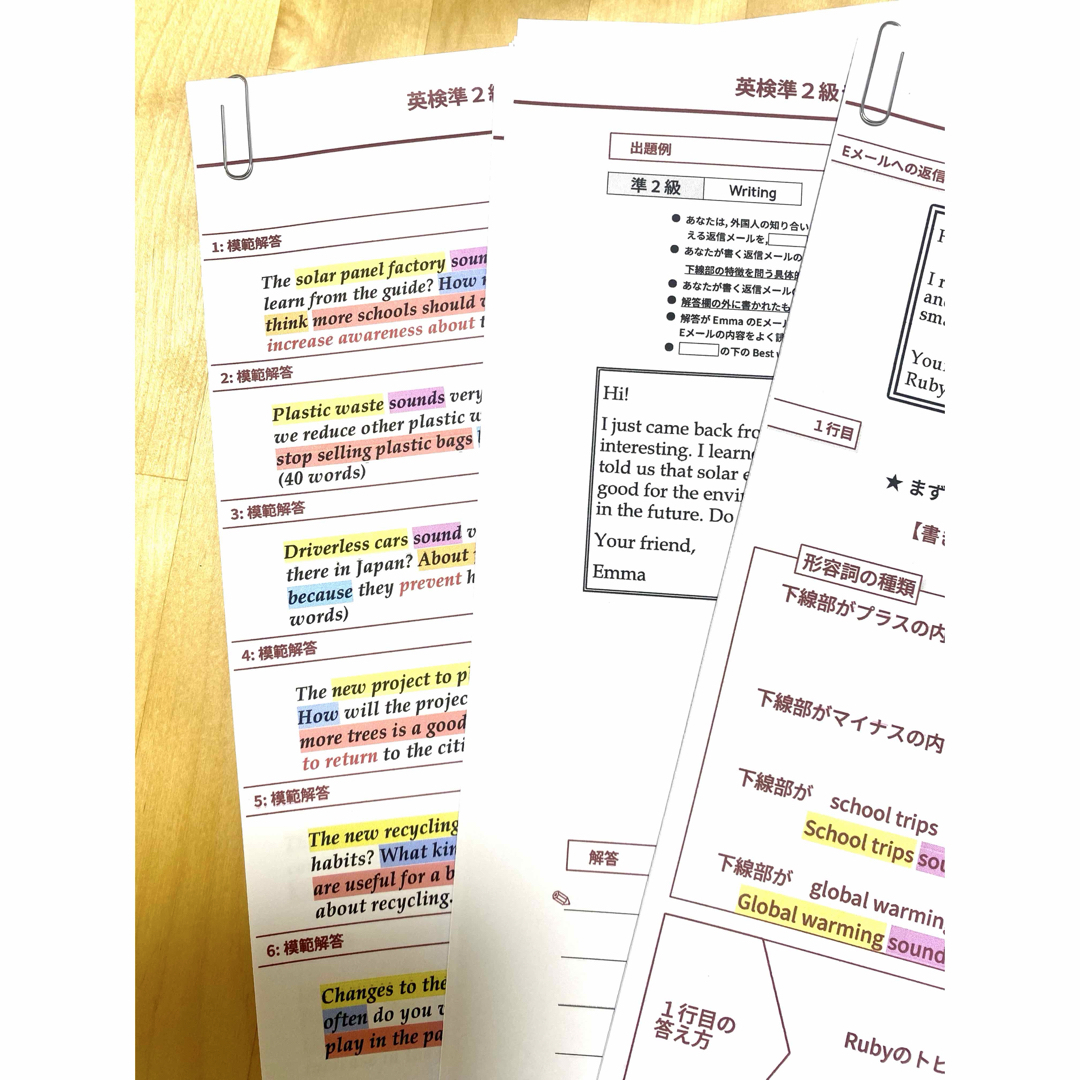 英検準2級
1: 模範解答
The solar panel factory
learn from the guide? How
think more schools should
increase awareness about
2: 模範解答
Plastic waste sounds very
we reduce other plastic
stop selling plastic bags
(40 words)
3: 模範解答
Driverless cars sound
there in Japan? About
because they prevent
words)
4: 模範解答
The new project to
How will the
more trees is a good
to return to the
5: 模範解答
The new recycling
habits? What
are useful for a
about recycling.
6: 模範解答
Changes to the
often do you
play in the
英検準2級
出題例
準2級 Writing
● あなたは, 外国人の知り合い
える返信メールを,
● あなたが書く返信メールの
下線部の特徴を問う具体的
● あなたが書く返信メール
● 解答欄の外に書かれたも
● 解答が Emma のEメー
Eメールの内容をよく読
● の下の Best
Hi!
I just came back
interesting. I
told us that solar
good for the
in the future. Do
Your friend,
Emma
解答
Eメールへの返信
I
Ruby
1行目
★ まず
【書き
形容詞の種類
下線部がプラスの内
下線部がマイナスの内
下線部が school trips
School trips
下線部が global warming
Global warming sound
1行目の
答え方
Rubyのトピ